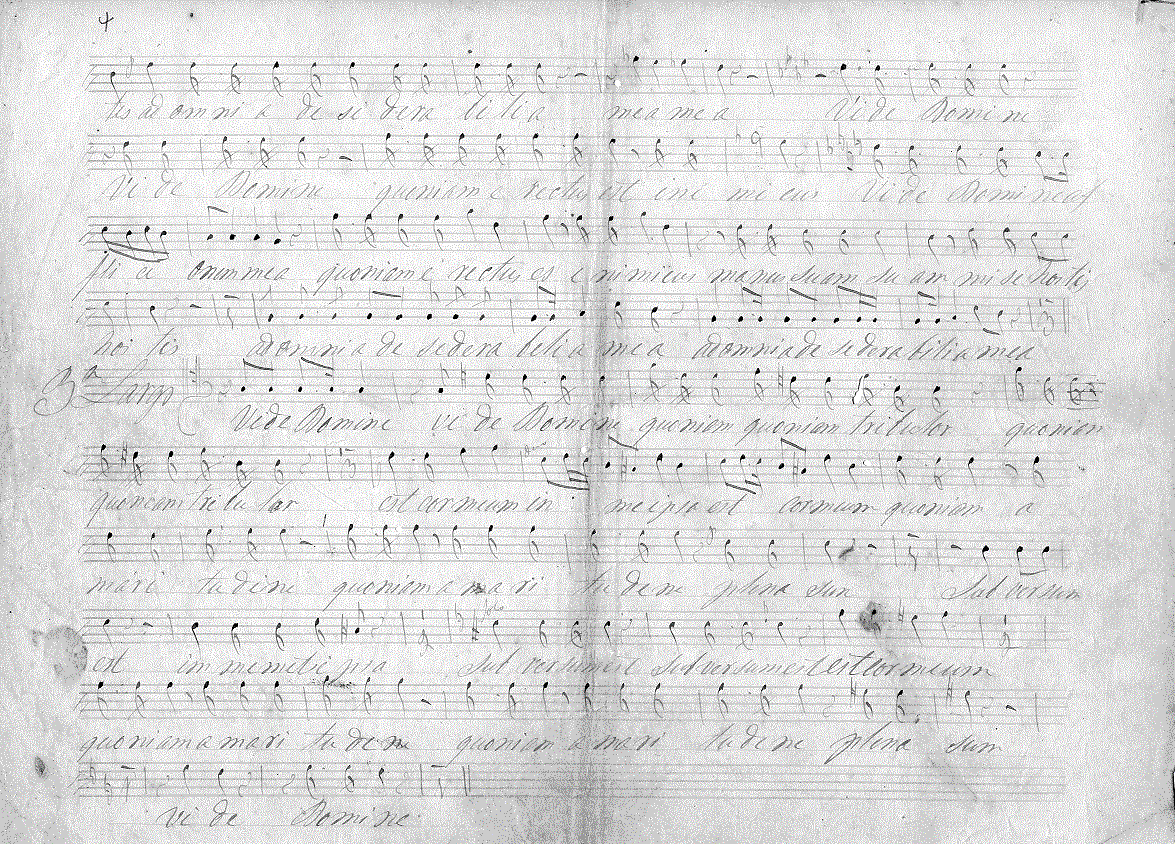 4
tis ad omni a de si dera bilia mea mea Vide Domine
Vi de Domine quoniam e rectus est ini mi cus Vi de Domine af
fli cti onem mea quoniam e rectus es e nimicus manus suam su am mi se hostis
hos tis adomnia de sedera bilia mea adomnia de sedera bilia mea
3ª Largo
Vide Domine vi de Domine quoniam quoniam tribulor quoniam
quoniam tri bu lor est cor meum in me ipsa est cormeum quoniam a
mari tu dine quoniam a ma ri tu de ne plena sun Sub versum
est im memetie psa sub versum est subversum est est cor meum
quoniam a mari tu dene quoniam a mari tu de ne plena sum
vi de Domine